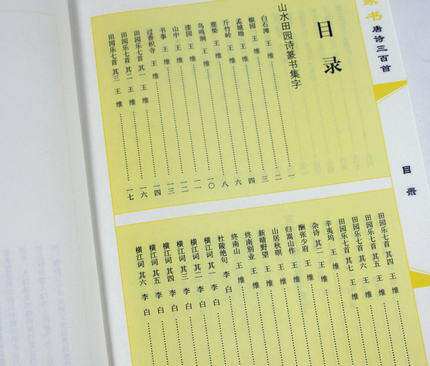 书 唐诗三百首
目录
目录
山水田园诗篆书集字
白石滩 王维
孟城坳 王维
斤竹岭 王维
鹿柴 王维
鸟鸣涧 王维
漆园 王维
山中 王维
书事 王维
过香积寺 王维
田园乐七首 其一 王维
田园乐七首 其二 王维
田园乐七首 其三 王维
田园乐七首 其四 王维
田园乐七首 其五 王维
田园乐七首 其六 王维
田园乐七首 其七 王维
辛夷坞 王维
杂诗 其二 王维
酬张少府 王维
归嵩山作 王维
山居秋暝 王维
新晴野望 王维
终南别业 王维
终南山 王维
杜陵绝句 李白
横江词 其一 李白
横江词 其二 李白
横江词 其三 李白
横江词 其四 李白
横江词 其五 李白
横江词 其六 李白